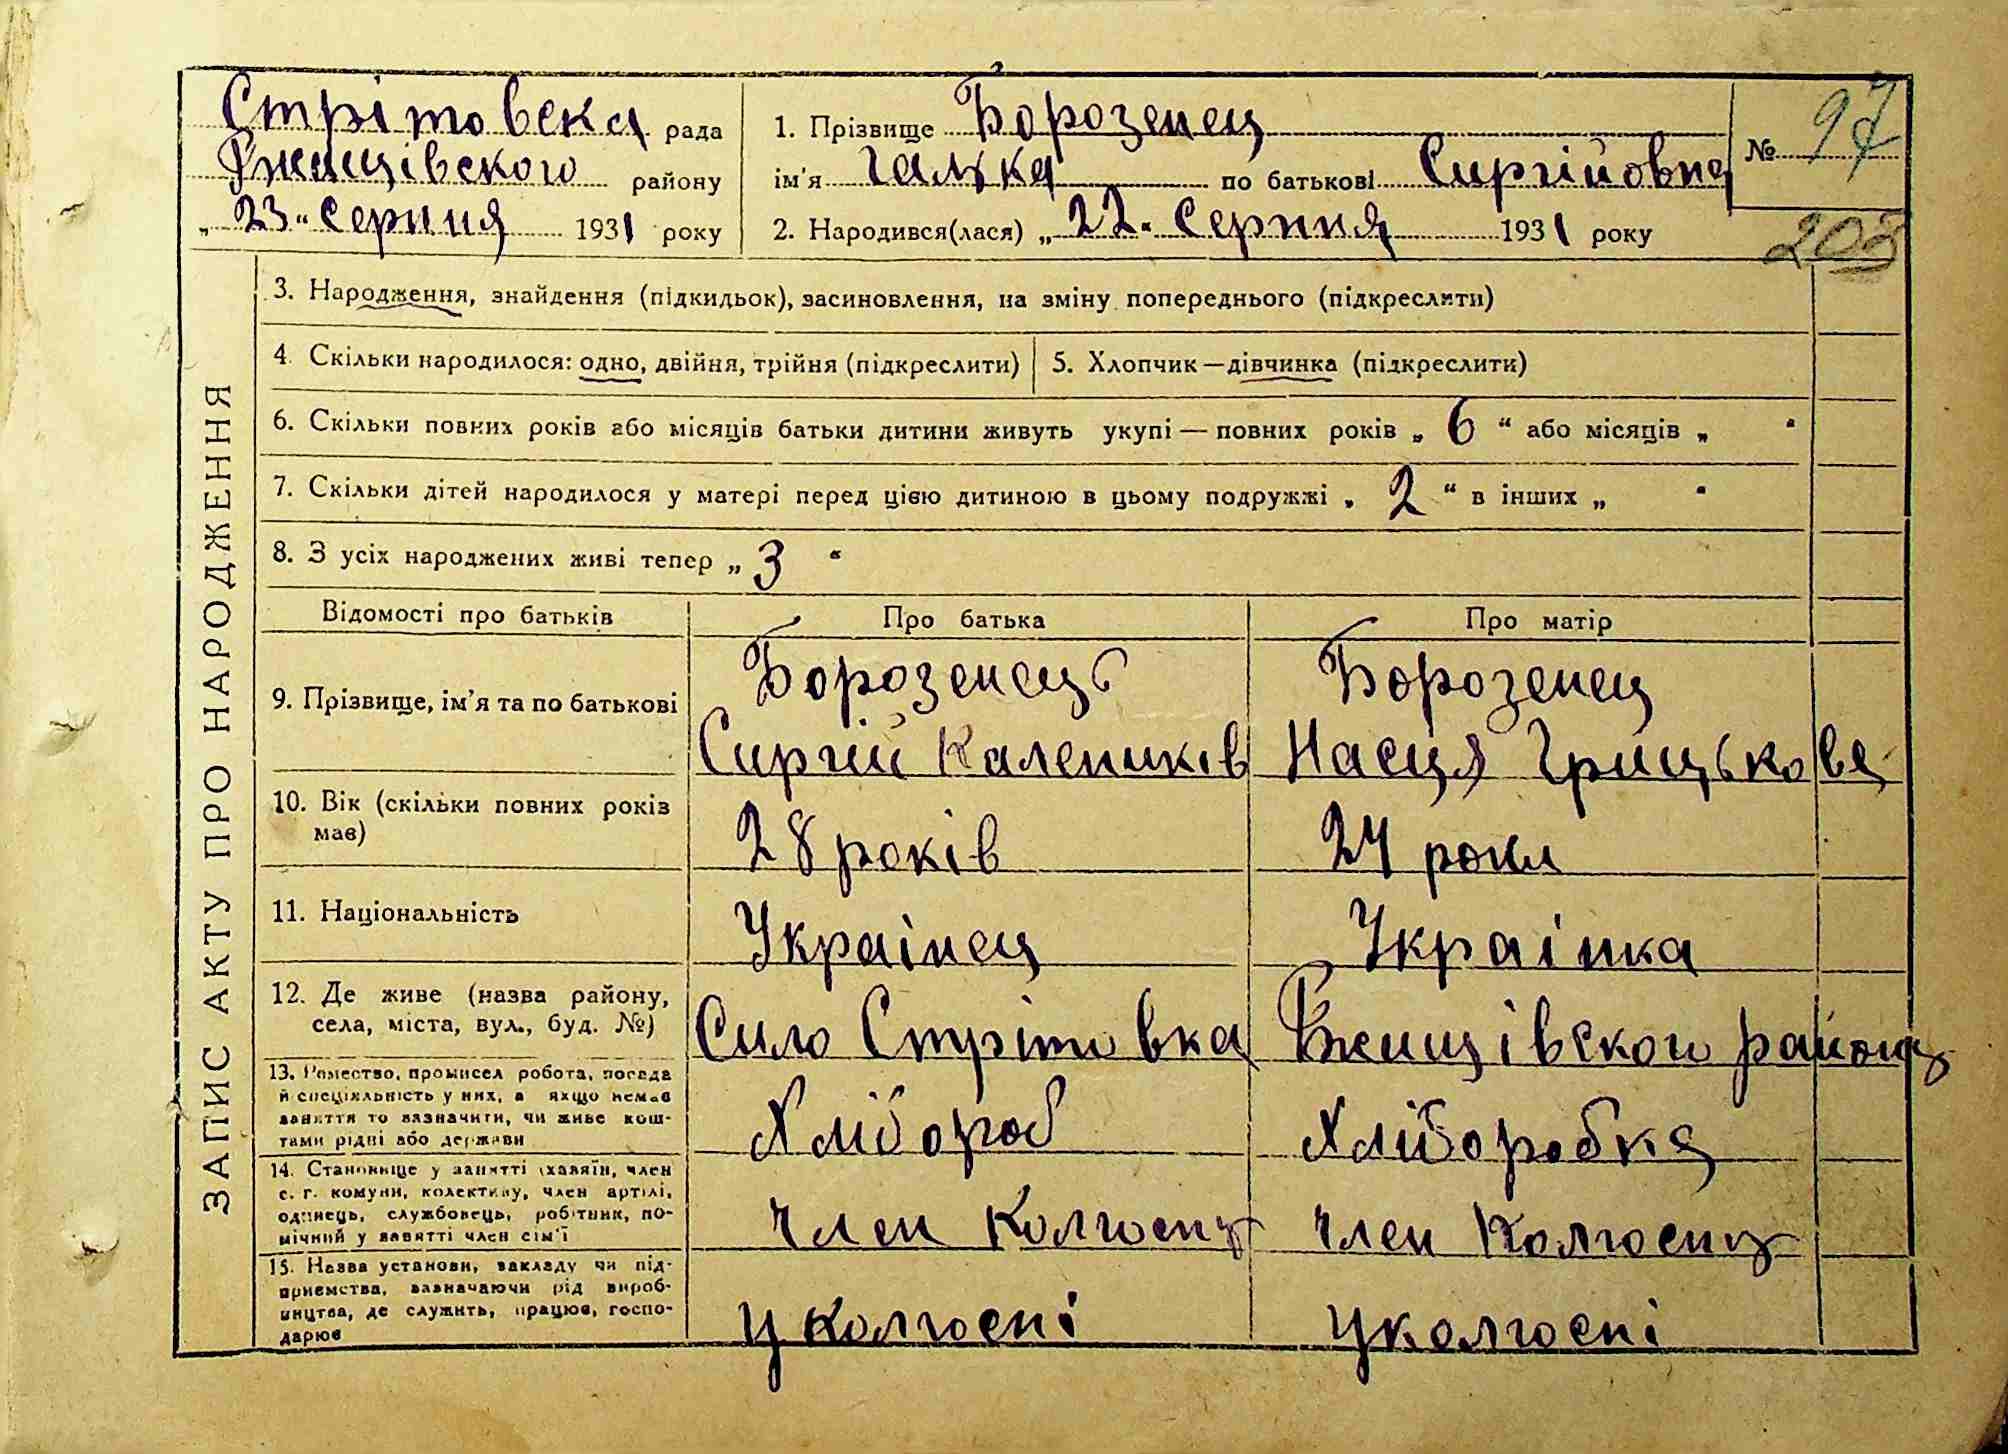 Стрітовска рада
Ржищівского району
„ 23 " Серпня 1931 року
1. Прізвище Борозенец
ім'я Галька по батькові Сиргійовна
2. Народився(лася) „ 22 " Серпня 1931 року
№ 97
203
ЗАПИС АКТУ ПРО НАРОДЖЕННЯ
3. Народження, знайдення (підкидьок), засиновлення, на зміну попереднього (підкреслити)
4. Скільки народилося: одно, двійня, трійня (підкреслити)
5. Хлопчик—дівчинка (підкреслити)
6. Скільки повних років або місяців батьки дитини живуть укупі — повних років „ 6 " або місяців „ "
7. Скільки дітей народилося у матері перед цією дитиною в цьому подружжі „ 2 " в інших „ "
8. З усіх народжених живі тепер „ 3 "
Відомості про батьків
Про батька
Про матір
9. Прізвище, ім'я та по батькові
Борозенець
Сиргій Калеників
Борозенец
Насця Грицькова
10. Вік (скільки повних років
має)
28 років
24 роки
11. Національність
Украінец
Украінка
12. Де живе (назва району,
села, міста, вул., буд. №)
Сило Стрітовка
Ржищівского району
13. Ремество, промисел робота, посада
й спеціяльність у них, а якщо немає
заняття то зазначити, чи живе кош-
тами рідні або держави
Хлібороб
Хліборобка
14. Становище у занятті (хазяїн, член
с. г. комуни, колективу, член артілі,
одинець, службовець, робітник, по-
мічний у занятті член сім'ї
член Колгоспу
член Колгоспу
15. Назва установи, закладу чи під-
приємства, зазначаючи рід вироб-
ництва, де служить, працює, госпо-
дарює
у Колгоспі
у колгоспі